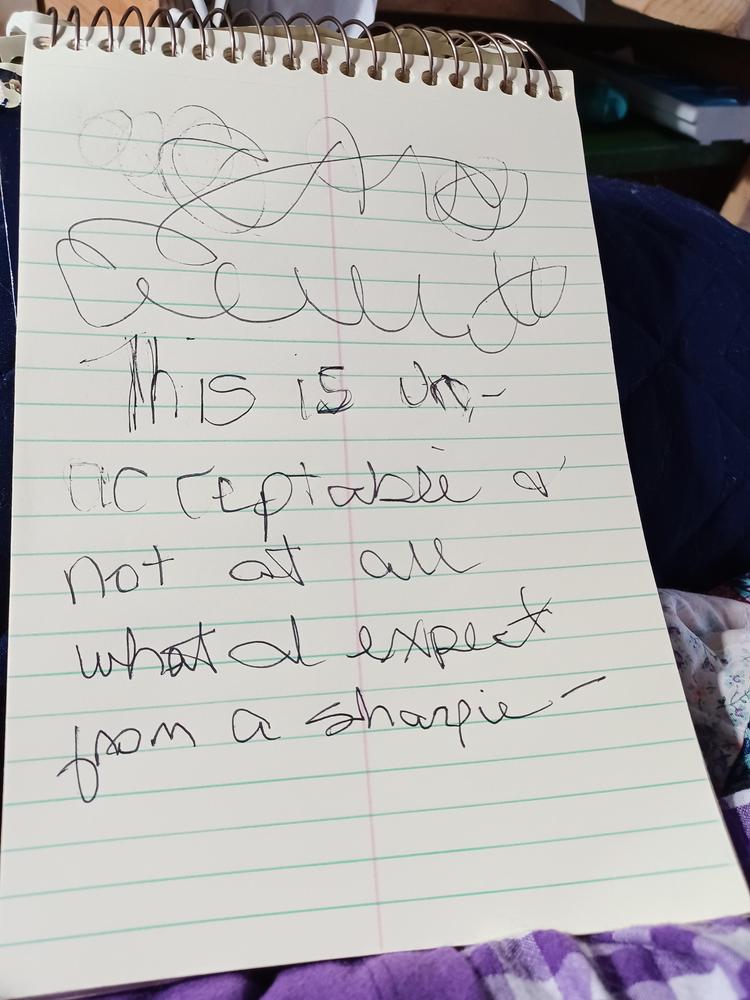 This is un-
acceptable &
not at all
what I expect
from a sharpie -